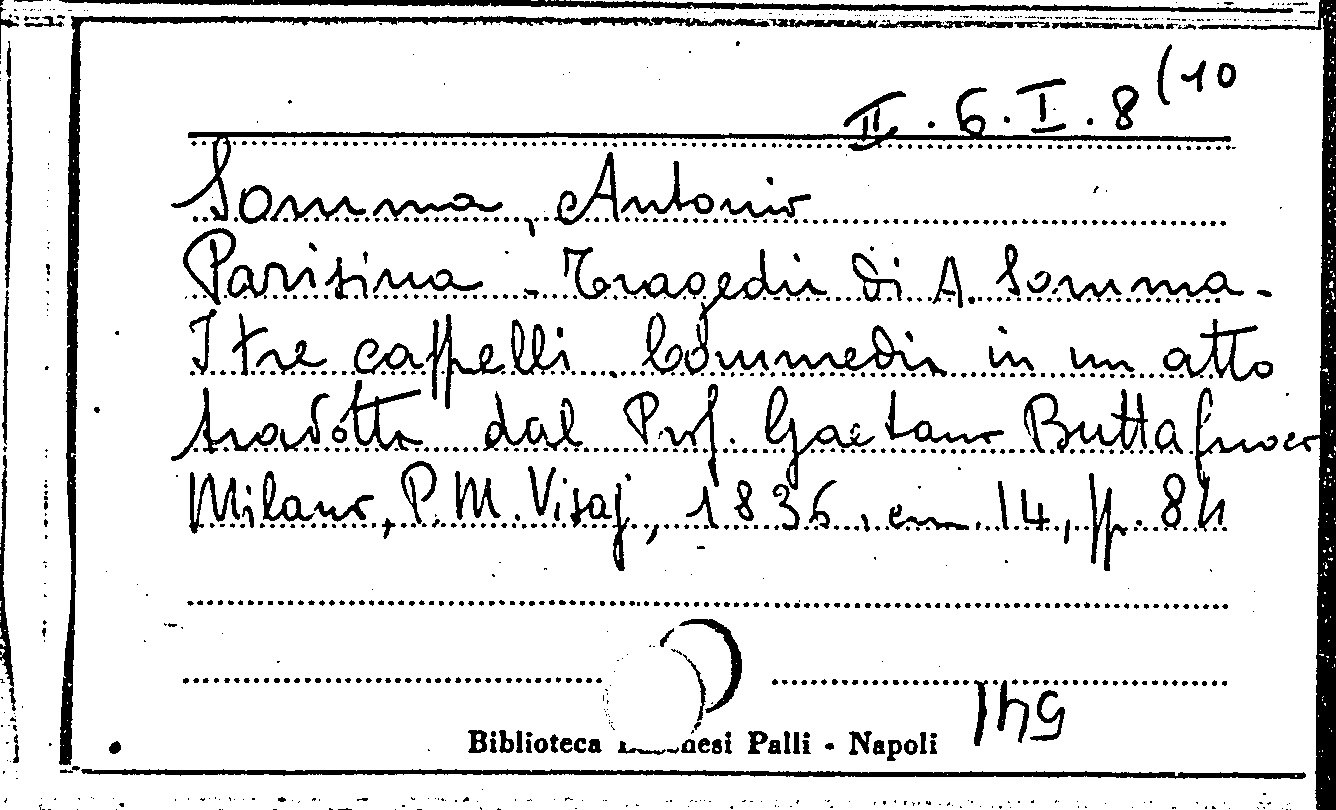 II. 6. I. 8 (10
Somma, Antonio
Parisina - Tragedia di A. Somma -
I tre cappelli. Commedia in un atto
tradotta dal Prof. Gaetano Buttafuoco
Milano, P. M. Visaj, 1836, cm. 14, pp. 84
Biblioteca Palli - Napoli